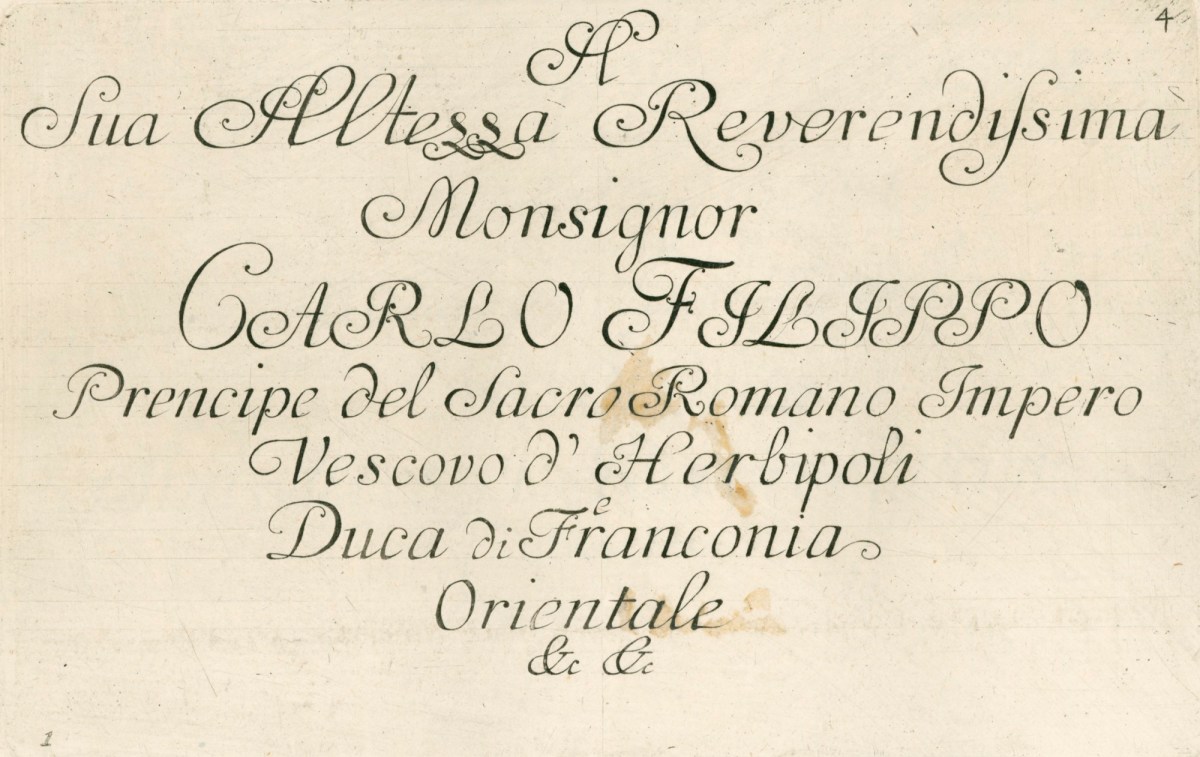 4
A
Sua Altezza Reverendiſsima
Monsignor
CARLO FILIPPO
Prencipe del Sacro Romano Impero
Vescovo d' Herbipoli
e
Duca di Franconia
Orientale
&c &c
1